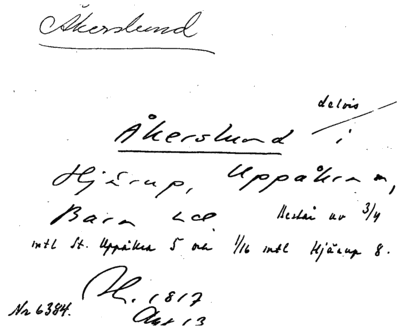 Åkerslund
delvis
Åkerslund i
Hjärup, Uppåkra sn,
Bara hd Består av 3/4
mtl St. Uppåkra 5 och 1/16 mtl Hjärup 8.
1817
Nr 6384. 13